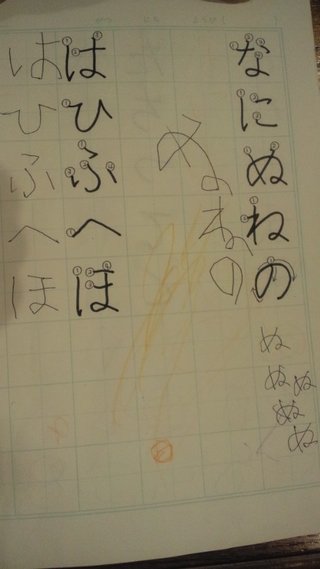 なにぬねの
ぬ
ね
の
ぬ
ぬぬ
ぬ
ぬ
はひふへほ
はひふへほ